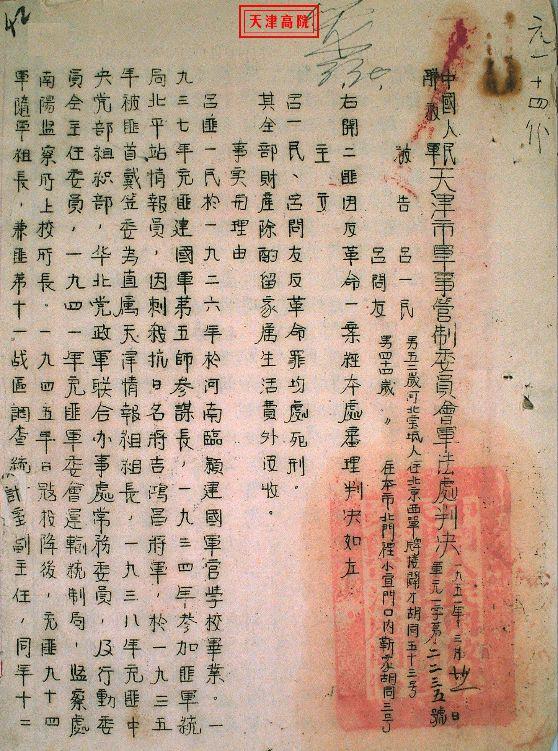 天津高院
中國人民解放軍天津市軍事管制委員會軍法處判決
一九五一年三月 日
軍九一字第二二三五號
被告 呂一民 男五二歲河北 城人住北京西單 胡同五十三号
呂問友 男四四歲 〃 住本市北門裡小宜門口内靳家胡同三号
右開二匪因反革命一案經本处審理判决如左
主文
呂一民、呂問友反革命罪均處死刑。
其全部財產除酌留家属生活費外没收。
事实和理由
呂匪一民於一九二六年於河南臨潁建國軍官学校畢業。一
九三七年充匪建國軍第五師参謀長，一九三四年参加匪軍統
局北平站情報員，因刺殺抗日名將吉鴻昌將軍，於一九三五
年被匪首戴笠委為直属天津情報組組長，一九三八年充匪中
央党部組织部，华北党政軍联合办事處常務委員，及行動委
員会主任委員，一九四一年充匪軍委會運輸統制局，監察處
南陽监察所上校所長。一九四五年日寇投降後，充匪九十四
軍隨軍組長，兼匪第十一战區調查統計室副主任，同年十二